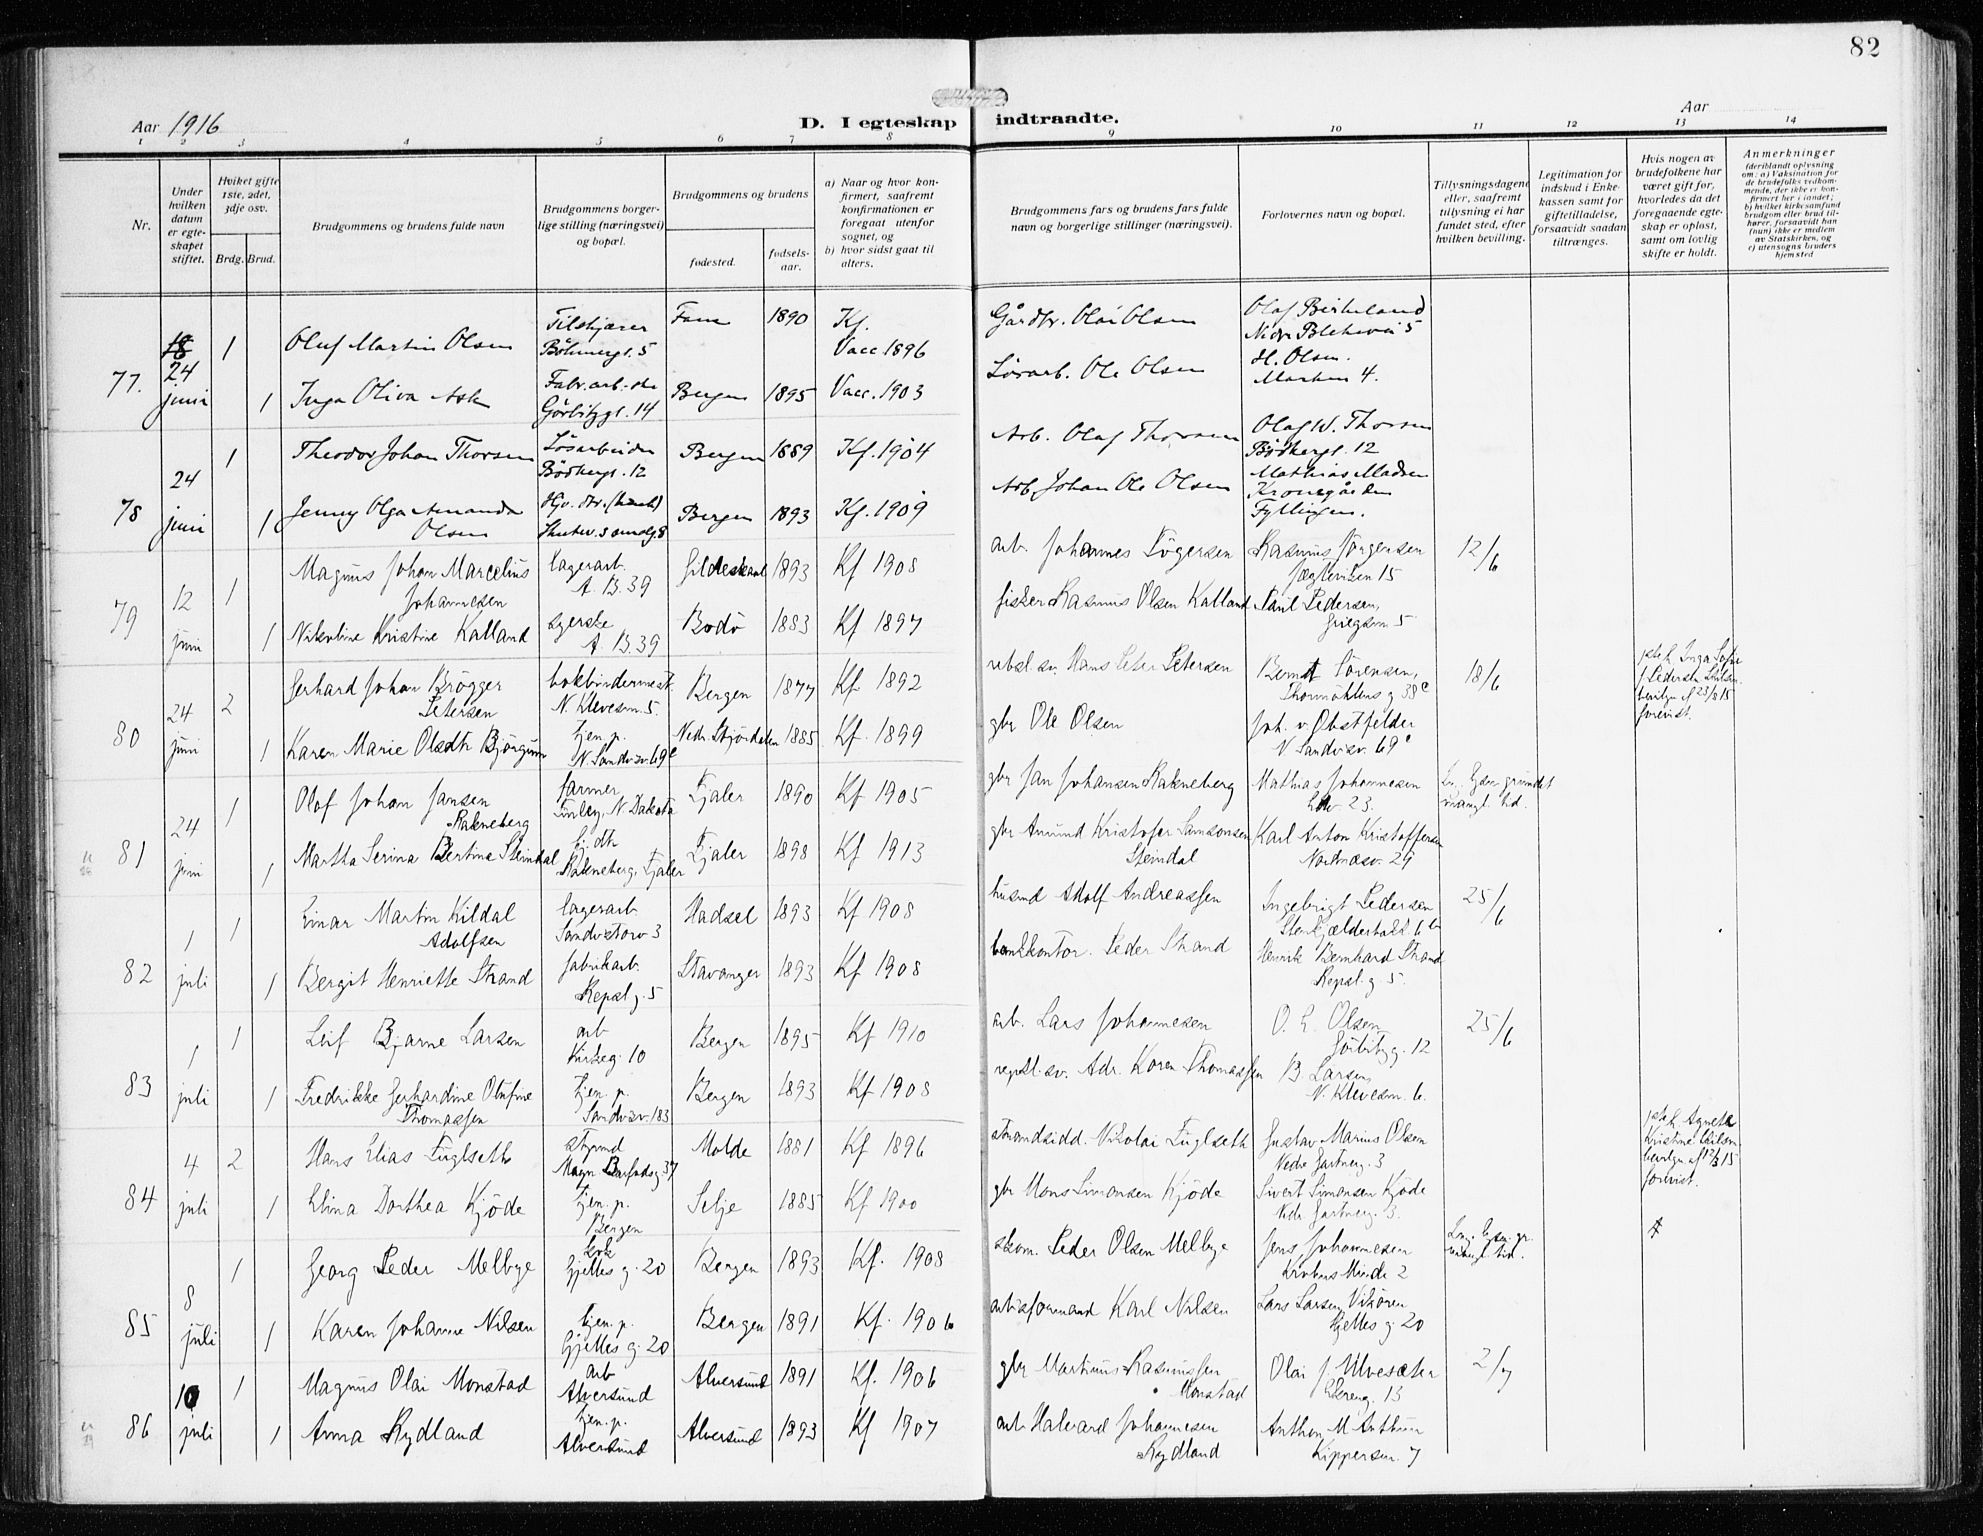 82
Aar 1916
D. I egteskap indtraadte.
Aar
1 2 3 4 5 6 7 8 9 10 11 12 13 14
Nr.
Under hvilken datum er egteskapet stiftet.
Hvilket gifte 1ste, 2det, 3dje osv.
Brdg. Brud.
Brudgommens og brudens fulde navn
Brudgommens borgerlige stilling (næringsvei) og bopæl.
Brudgommens og brudens
fødested.
fødselsaar.
a) Naar og hvor konfirmert, saafremt konfirmationen er foregaat utenfor sognet, og
b) hvor sidst gaat til alters.
Brudgommens fars og brudens fars fulde navn og borgerlige stillinger (næringsvei).
Forlovernes navn og bopæl.
Tillysningsdagene eller, saafremt tillysning ei har fundet sted, efter hvilken bevilling.
Legitimation for indskud i Enkekassen samt for giftetilladelse, forsaavidt saadan tiltrænges.
Hvis nogen av brudefolkene har været gift før, hvorledes da det foregaaende egteskap er opløst, samt om lovlig skifte er holdt.
Anmerkninger
(deriblandt oplysning om: a) Vaksination for de brudefolks vedkommende, der ikke er konfirmert her i landet; b) hvilket kirkesamfund brudgom eller brud tilhører, forsaavidt han (hun) ikke er medlem av Statskirken, og c) utensogns bruders hjemsted
77. 24 juni
1 Oluf Martin Olsen Böhmergt. 5 Fane 1890 Kf. Vacc. 1896 Gårdbr. Olai Olsen Olaf Birkeland
1 Inga Oliva Ask Fabr. arb.-ske Görbitzgt. 14 Bergen 1895 Vacc. 1903 Lösarb. Ole Olsen H. Olsen. Marken 4.
78 24 juni
1 Theodor Johan Thorsen Lösarbeider Bödkergt. 12 Bergen 1889 Kf. 1904 Arb. Olaf Thorsen Olaf W. Thorsen Bödkergt. 12
1 Jenny Olga Amanda Olsen Bergen 1893 Kf. 1909 Arb. Johan Ole Olsen Mathias Madsen Fyllingen.
79 12 juni
1 Magnus Johan Marcelius Johannesen lagerarb. A. B. 39 Gildeskaal 1893 Kf 1908 arb. Johannes Rasmus Jørgensen Jægteviken 15 12/6
1 Nikoline Kristine Kalland syerske A. B. 39 Bodö 1883 Kf 1897 fisker Rasmus Olsen Kalland Paul Pedersen, Griegsm. 5
80 24 juni
2 Gerhard Johan Brögger Petersen bokbindermest. N. Klevesm. 5. Bergen 1877 Kf 1892 rebsl. sv. Hans Peter Petersen Bernt Sörensen, Thormöhlens g 38c 18/6
1 Karen Marie Olsdtr Bjørgum tjen. p. N. Sandvsv. 69c Nedr. Stjördalen 1885 Kf. 1899 gbr Ole Olsen Joh. v. Obstfelder N Sandvsv. 69c
81 24 juni
1 Olaf Johan Jansen Rakneberg farmer Finley, N. Dakota Fjaler 1890 Kf 1905 gbr Jan Johansen Rakneberg Mathias Johannesen 23. mangl. tid.
1 Martha Serina Bertina Steindal Rakneberg, Fjaler Fjaler 1898 Kf 1913 gbr Amund Kristofer Samsonsen Steindal Karl Anton Kristoffersen Nordnæsv. 29
82 1 juli
1 Einar Martin Kildal Adolfsen lagerarb. Sandvstorv 3 Hadsel 1893 Kf 1908 husmd Adolf Andreassen Ingebrigt Pedersen 25/6
1 Bergit Henriette Strand fabrikarb. Repsl g. 5 Stavanger 1893 Kf 1908 Peder Strand Henrik Bernhard Strand Repsl. g 5.
83 1 juli
1 Leif Bjarne Larsen arb Kirkeg. 10 Bergen 1895 Kf 1910 arb. Lars Johannesen O. E. Olsen Görbitzg. 12 25/6
1 Fredrikke Gerhardine Olufine Thomassen tjen. p. Sandvsv. 183 Bergen 1893 Kf. 1908 repsl. sv. Adr. Koren Thomassen B. Larsen, N. Klevesm. 6.
84 4 juli
2 Hans Elias Fuglseth styrmd Magn Barfods g 37 Molde 1881 Kf 1896 strandsidd. Nikolai Fuglseth Gustav Marius Olsen Nedre Hartverg. 3
1 Elina Dorthea Kjöde tjen. p. Bergen Selje 1885 Kf 1900 gbr Mons Simonsen Kjöde Sivert Simonsen Kjöde
85 8 juli
1 Georg Peder Melbye Gjelles g. 20 Bergen 1893 Kf. 1908 skom. Peder Olsen Melbye Jens Johannesen 2 mangl. tid.
1 Karen Johanne Nilsen tjen. p. Gjelles g. 20 Bergen 1891 Kf. 1906 arbisformand Karl Nilsen Lars Larsen Vikören Gjelles g. 20
86 10 juli
1 Magnus Olai Monstad arb Alversund Alversund 1891 Kf. 1906 gbr Martinus Rasmussen Monstad Olai J. Ulvesæter 13 2/7
1 Anna Rydland tjen. p. Alversund Alversund 1893 Kf 1907 arb Halvard Johannesen Rydland Anthon M Anthun Kippersm. 7